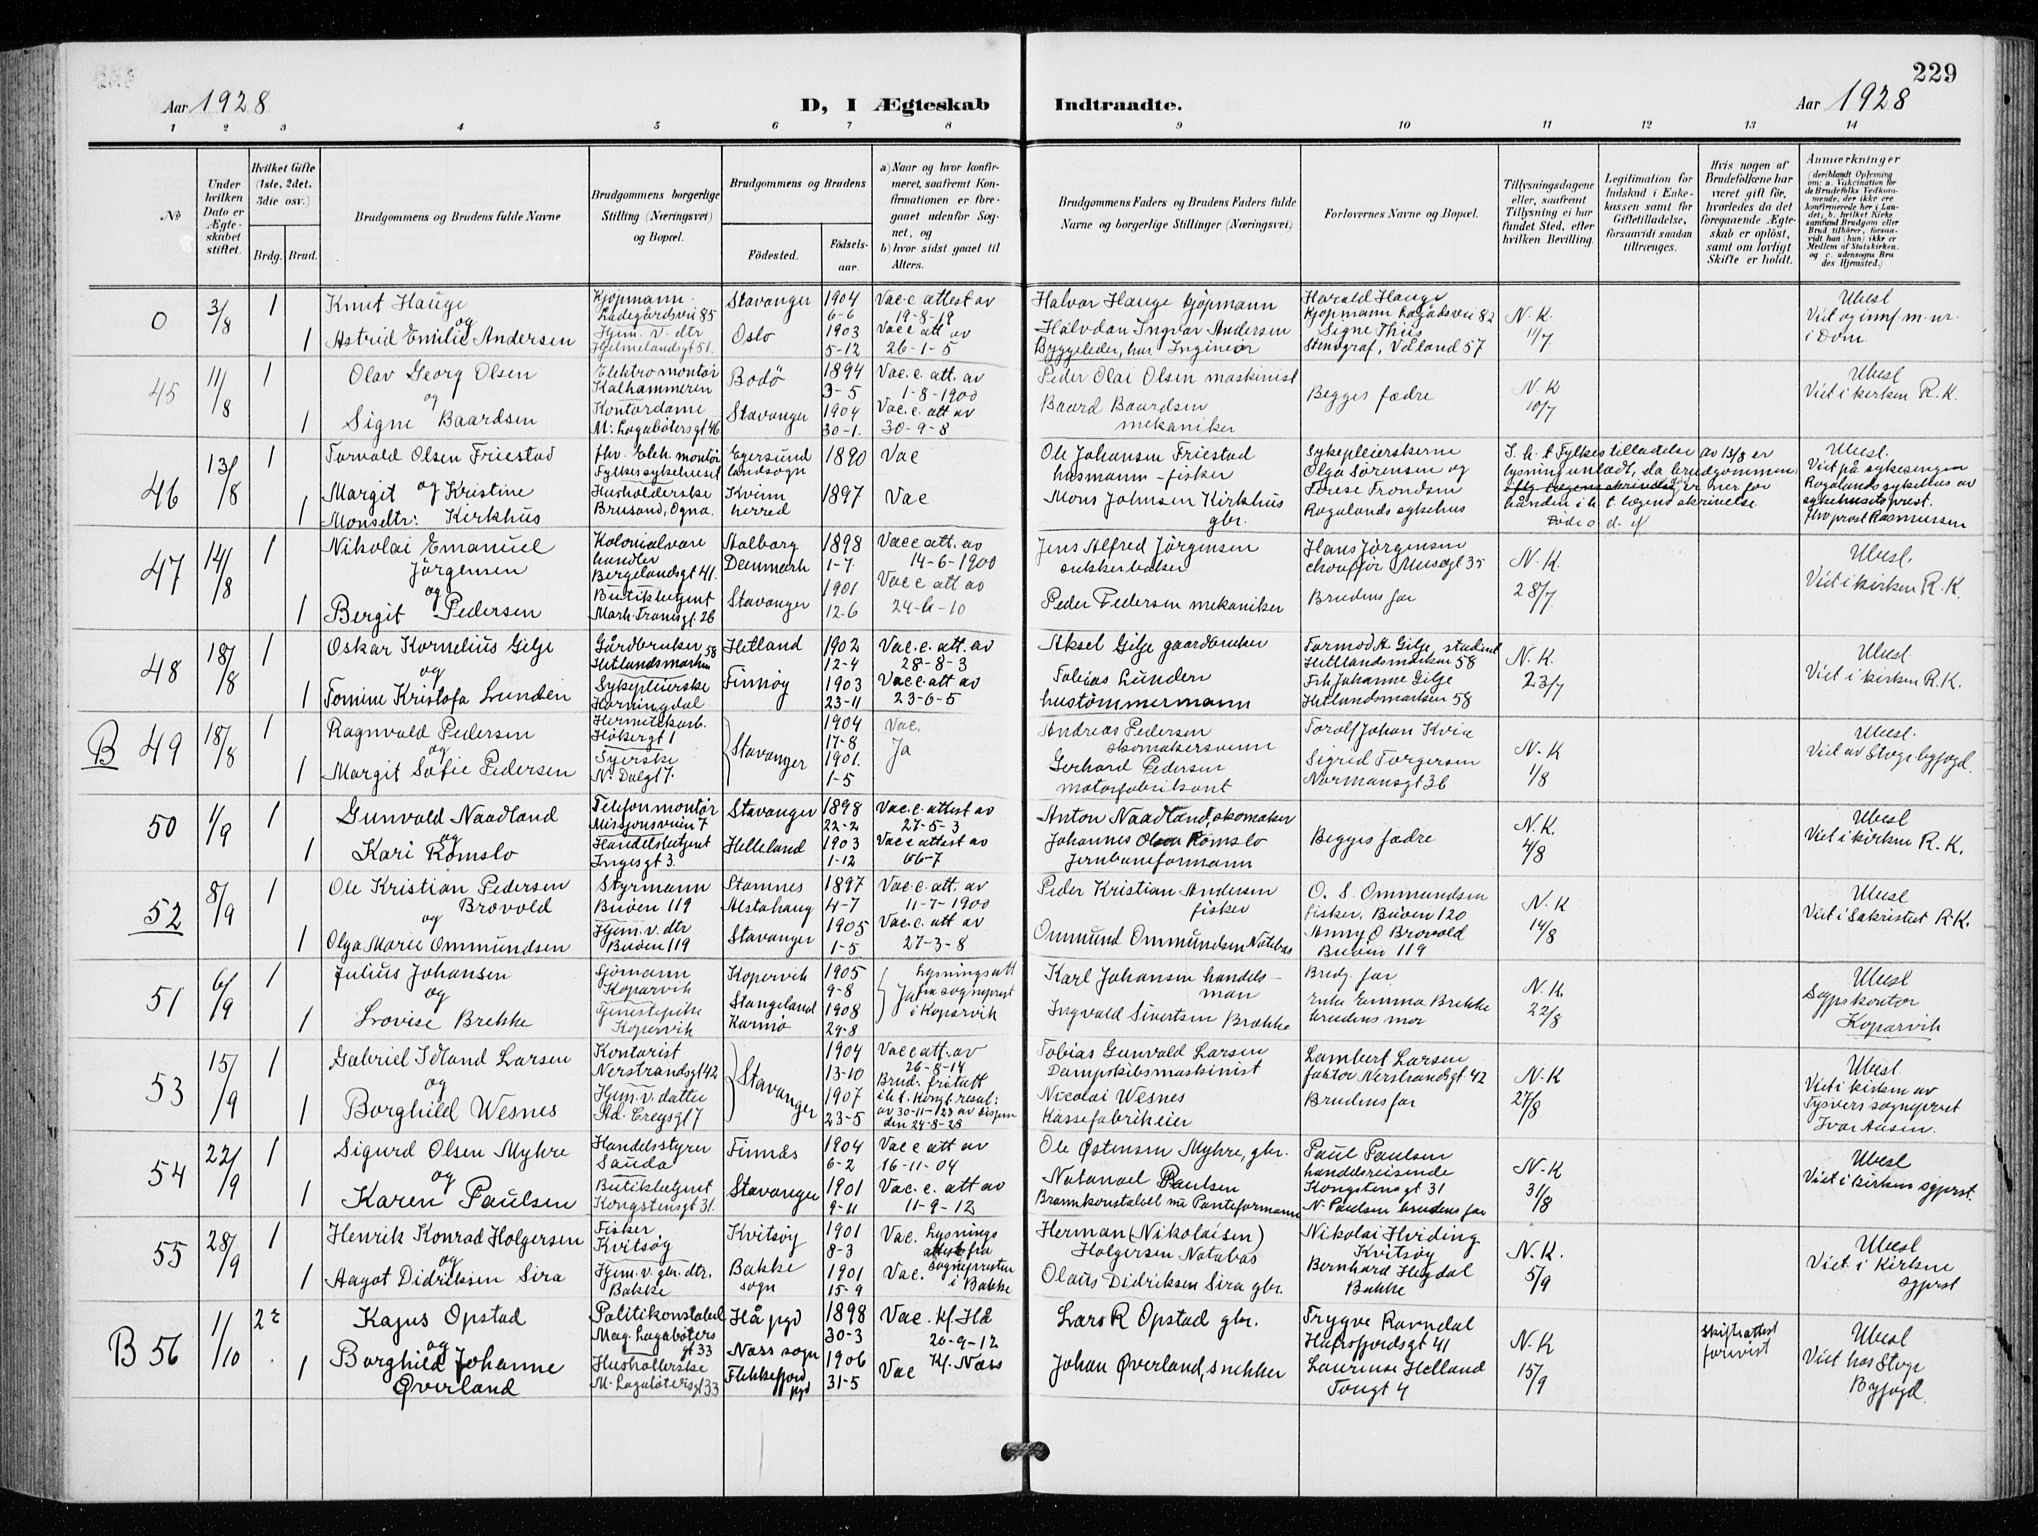 229
Aar 1928
D, I Ægteskab
Indtraadte.
Aar 1928
1 2 3 4 5 6 7 8 9 10 11 12 13 14
№
Under hvilken Dato er Ægteskabet stiftet.
Hvilket Gifte (1ste, 2det, 3die osv.)
Brdg. Brud.
Brudgommens og Brudens fulde Navne
Brudgommens borgerlige Stilling (Næringsvei) og Bopæl.
Brudgommens og Brudens
Fødested.
Fødselsaar.
a) Naar og hvor konfirmeret, saafremt Konfirmationen er foregaaet udenfor Sognet, og
b) hvor sidst gaaet til Alters.
Brudgommens Faders og Brudens Faders fulde Navne og borgerlige Stillinger (Næringsvei)
Forlovernes Navne og Bopæl.
Tillysningsdagene eller, saafremt Tillysning ei har fundet Sted, efter hvilken Bevilling.
Legitimation for Indskud i Enkekassen samt for Giftetilladelse, forsaavidt saadan tiltrænges.
Hvis nogen af Brudefolkene har været gift før, hvorledes da det foregaaende Ægteskab er opløst, samt om lovligt Skifte er holdt.
Anmærkninger
(deriblandt Oplysning om: a. Vakcination for de Brudefolks Vedkommende, der ikke ere konfirmerede her i Landet; b. hvilket Kirkesamfund Brudgom eller Brud tilhører, forsaavidt han (hun) ikke er Medlem af Statskirken, og c. udensogns Brudes Hjemsted.)
0 3/8 1 1
Knut Hauge
og
Astrid Emilie Andersen
Kjøpmann
Ladegårdsvei 85
Hjem. v. dtr
Hjelmelandsgt 51.
Stavanger 1904 6-6
Oslo 1903 5-12
Vac.c attest av
19-8-19
Vacc att av
26-1-5
Halvar Hauge kjøpmann
Halvdan Ingvar Andersen
Byggeleder, hus. Ingeniør
Harald Hauge
Kjøpmann Lagådsvei 82
Signe Thiis
Stenograf, Våland 57
N. K
11/7
Ubesl
Viet og innf. m. nr.
i Dom.
45 11/8 1 1
Olav Georg Olsen
og
Signe Baardsen
Elektromontør
Kalhammeren
Kontordame
M: Lagabøtersgt 46
Bodö 1894 3-5
Stavanger 1904 30-1.
Vac. c. att. av
1-8-1900
Vac. c. att av
30-9-8
Peder Olai Olsen maskinist
Baard Baardsen
mekaniker
Begges fædre
N. K
10/7
Ubesl
Viet i kirken R. K.
46 13/8 1 1
Torvald Olsen Friestad
og
Margit Kristine
Monsdtr: Kirkhus
fhv. Elek. montør
Fylkessykehuset
Husholderske
Brusand, Ogna.
Egersund landsogn 1890
Kvinnherred 1897
Vac
Vac
Ole Johansen Friestad
husmann - fisker
Mons Johnsen Kirkhus
gbr.
Sykepleierskerne
Olga Sørensen og
Terese Trondsen
Rogalands sykehus
I. h. t Fylkes tilladelse av 13/8 er
lysning unladt, da brudgommen
iflg lægens skrivelse er nær for
hånden i h. t. lægens skrivelse
Døde o d. 
Ubesl.
Viet på sykesengen
Rogalands sykehus av
sykehusets prest.
Hr prost Rasmussen
47 14/8 1 1
Nikolai Emanuel
Jörgensen
og
Bergit Pedersen
Kolonialvare
handler
Bergelandsgt 41.
Butikbetjent
Mark. Tronigt. 26
Aalborg Danmark 1898 1-7.
Stavanger 1901 12-6
Vacc att. av
14-6-1900
Vac c att av
24-4-10
Jens Alfred Jörgensen
sukkerbaker
Peder Pedersen mekaniker
Hans Jörgensen
chauffør Musegt 35
Brudens far
N. K.
28/7.
Ubesl.
Viet i kirken R. K.
48 18/8 1 1
Oskar Kornelius Gilje
og
Tomine Kristofa Lunden
Gårdbruker 58
Hetlandsmarken
Sykepleierske
Horningdal
Hetland 1902 12-4
Finnøy 1903 23-11
Vac. c. att. av
28-8-3
Vac c. att av
23-6-5
Aksel Gilje gaardbruker
Tobias Lunden
hustömmermann
Tormod A Gilje student
Hetlandsmarken 58
Frk Johanne Gilje
Hetlandsmarken 58
N. K.
23/7
Ubesl
Viet i kirken R. K.
B 49 18/8 1 1
Ragnvald Pedersen
og
Margit Sofie Pedersen
Hermetikarb.
Høkergt 1
Syerske
N. Dalgt 7.
Stavanger
1904 17-8
1901. 1-5
Vac.
Ja
Andreas Pedersen
skomakersvenn
Gerhard Pedersen
motorfabrikant
Torolf Johan Kvia
Sigrid Torgersen
Normansgt 36
N. K
1/8
Ubesl.
Viet av Stvgr byfogd.
50 1/9 1 1
Gunvald Naadland
og
Kari Romslo
Telefonmontør
Missjonsveien 7
Handelsbetjent
Ingesgt 3.
Stavanger 1898 22-2
Helleland 1903 1-12
Vac. c. attest av
27-5-3
Vac c attest av
66-7
Anton Naadland, skomaker
Johannes Olsen Romslo
Jernbaneformann
Begges fædre
N. K.
4/8
Ubesl
Viet i kirken R. K.
52 8/9 1 1
Ole Kristian Pedersen
Brovold
og
Olga Marie Ommundsen
Styrmann
Buøen 119
Hjem. v. dtr
Buøen 119
Stamnes Alstahaug 1897 4-7
Stavanger 1905 1-5
Vac. c. att. av
11-7-1900
Vac. c. att av
27-3-8
Peder Kristian Andersen
fisker
Ommund Ommundsen Natebas
O. S. Ommundsen
fisker, Buøen 120
Anny O Brovold
Buøen 119
N. K
14/8
Ubesl
Viet i Sakristiet R. K.
51 6/9 1 1
Julius Johansen
og
Lovise Brekke
Sjømann
Koparvik
Tjenestepike
Kopervik
Kopervik 1905 9-8
Stangeland Karmø 1908 29-8
Ja
Lysningsatt
fra sogneprest
i Koparvik
Karl Johansen handels-
man
Ingvald Sivertsen Brække
Brudg. far
Enke Emma Brekke
brudens mor
N. K.
22/8
Ubesl
Sgpskontor
Koparvik
53 15/9 1 1
Gabriel Idland Larsen
og
Borghild Wesnes
Kontorist
Nerstrandsgt 42
Hjem. v. datter
Sed. Ereysgt 7
Stavanger
1904 13-10
1907 23-5
Vac c att. av
26-8-14
Brud. fritatt
i h. t. Kongl. resol:
av 30-11-123 av bispen
den 24-8-28
Tobias Gunvald Larsen
Dampskibsmaskinist
Nicolai Wesnes
Kassefabrikeier
Lambert Larsen
faktor Nerstrandsgt 42
Brudens far
N. K
27/8
Ubesl
Viet i kirken av
Tysvers sogneprest
Ivar Aasen.
54 22/9 1 1
Sigurd Olsen Myhre
og
Karen Paulsen
Handelsstyrer
Sauda
Butikbetjent
Kongstensgt 31.
Finnås 1904 6-2
Stavanger 1901 9-11
Vac c att av
16-11-04
Vac. c. att av
11-9-12
Ole Østensen Myhre, gbr.
Natanael Paulsen
Brannkonstabel nu Panteformann
Paul Paulsen
handelsreisende
Kongstensgt 31
N. Paulsen brudens far
N. K
31/8
Ubesl
Viet i kirken sgprst.
55 28/9 1 1
Henrik Konrad Holgersen
og
Aagot Didriksen Sira
Fisker
Kvitsøy
Hjem. v. gbr. dtr.
Bakke
Kvitsøy 1901 8-3
Bakke sogn 1901 15-9
Vac. Lysnings
attest fra
Vac. Sogneprester
i Bakke
Herman (Nikolaisen)
Holgersen Natabas
Olaus Didriksen Sira gbr.
Nikolai Hviding
Kvitsøy
Bernhard Hegdal
Bakke
N. K.
5/9
Ubesl
Viet i Kirkene
sgprst
B 56 1/10 2º 1
Kajus Opstad
og
Borghild Johanne
Øverland
Politikonstabel
Mag. Lagabøters
gt 33
Husholderske
M. Lagabøtersgt 33
Hå pgd 1898 30-3
Næss sogn Flekkefjord pgd 1906 31-5
Vac. Kf. Hå
20-9-12
Vac Kf. Næss
Lars R Opstad gbr.
Johan Øverland, snekker
Trygve Ravndal
Hafrsfjordsgt 41
Laurense Helland
Tougt 4
N. K
15/9
Skifteattest
forevist
Ubesl
Viet hos Stvgr
Byfogd.